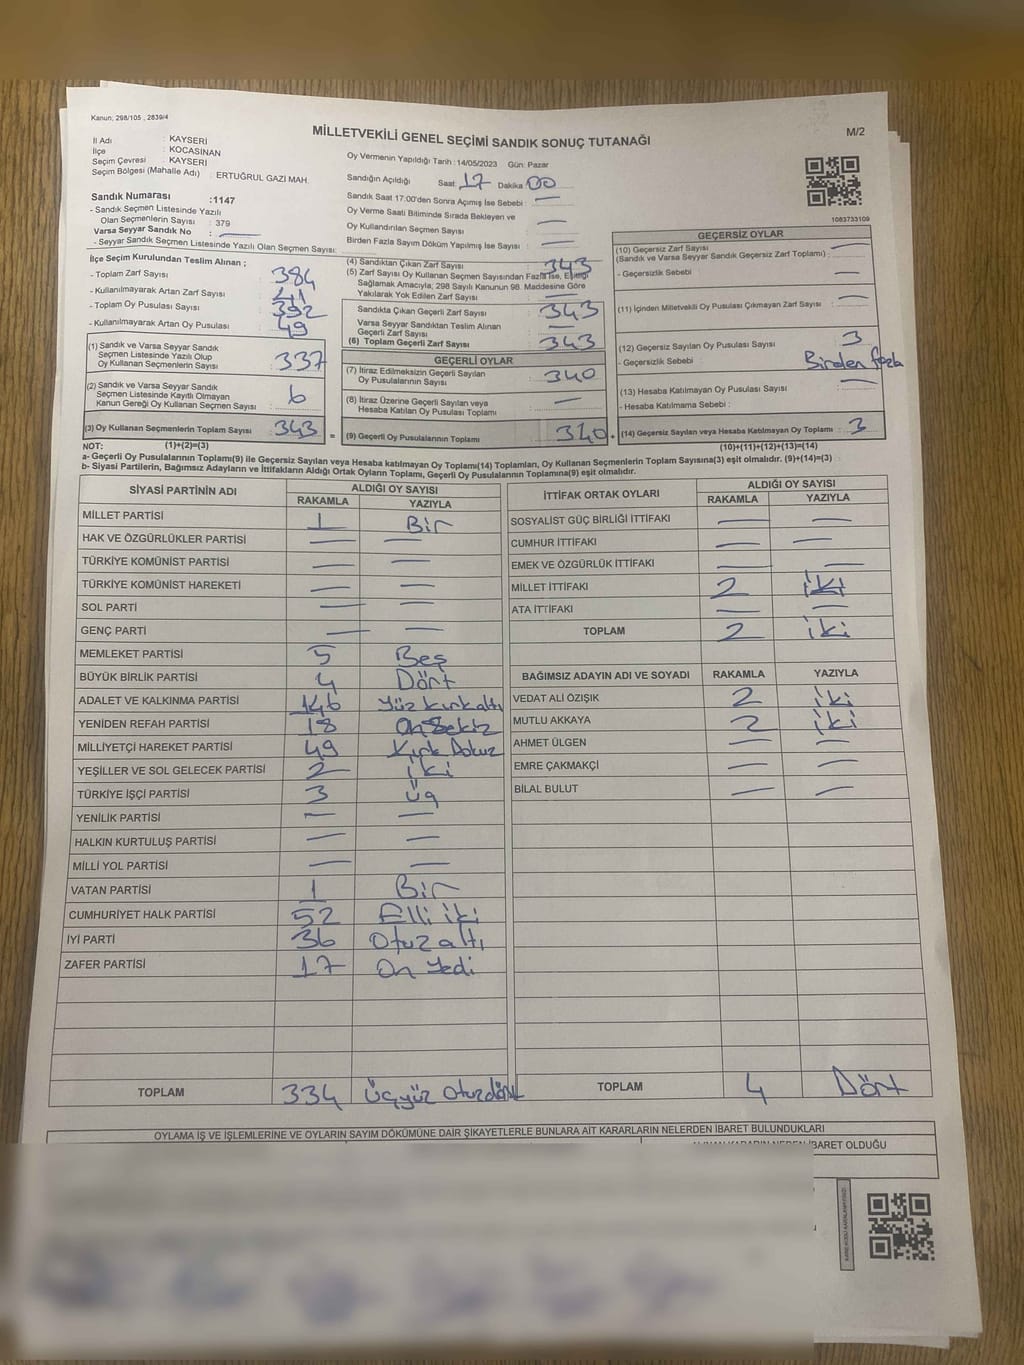 Kanun; 298/105 , 2839/4
MİLLETVEKİLİ GENEL SEÇİMİ SANDIK SONUÇ TUTANAĞI
M/2
İl Adı : KAYSERİ
İlçe : KOCASİNAN
Seçim Çevresi : KAYSERİ
Seçim Bölgesi (Mahalle Adı) : ERTUĞRUL GAZİ MAH.
Sandık Numarası :1147
- Sandık Seçmen Listesinde Yazılı
Olan Seçmenlerin Sayısı : 379
Varsa Seyyar Sandık No : —
- Seyyar Sandık Seçmen Listesinde Yazılı Olan Seçmen Sayısı:
Oy Vermenin Yapıldığı Tarih : 14/05/2023 Gün: Pazar
Sandığın Açıldığı Saat: 17 Dakika 00
Sandık Saat 17:00'den Sonra Açımış İse Sebebi : —
Oy Verme Saati Bitiminde Sırada Bekleyen ve
Oy Kullandırılan Seçmen Sayısı : —
Birden Fazla Sayım Döküm Yapılmış İse Sayısı : —
1083733109
İlçe Seçim Kurulundan Teslim Alınan ;
- Toplam Zarf Sayısı : 384
- Kullanılmayarak Artan Zarf Sayısı : 41
- Toplam Oy Pusulası Sayısı : 392
- Kullanılmayarak Artan Oy Pusulası : 49
(1) Sandık ve Varsa Seyyar Sandık
Seçmen Listesinde Yazılı Olup
Oy Kullanan Seçmenlerin Sayısı : 337
(2) Sandık ve Varsa Seyyar Sandık
Seçmen Listesinde Kayıtlı Olmayan
Kanun Gereği Oy Kullanan Seçmen Sayısı : 6
(3) Oy Kullanan Seçmenlerin Toplam Sayısı : 343
(4) Sandıktan Çıkan Zarf Sayısı : 343
(5) Zarf Sayısı Oy Kullanan Seçmen Sayısından Fazla İse, Eşitliği
Sağlamak Amacıyla; 298 Sayılı Kanunun 98. Maddesine Göre
Yakılarak Yok Edilen Zarf Sayısı : —
Sandıkta Çıkan Geçerli Zarf Sayısı : 343
Varsa Seyyar Sandıktan Teslim Alınan
Geçerli Zarf Sayısı : —
(6) Toplam Geçerli Zarf Sayısı : 343
GEÇERLİ OYLAR
(7) İtiraz Edilmeksizin Geçerli Sayılan
Oy Pusulalarının Sayısı : 340
(8) İtiraz Üzerine Geçerli Sayılan veya
Hesaba Katılan Oy Pusulası Toplamı : —
= (9) Geçerli Oy Pusulalarının Toplamı : 340 +
GEÇERSİZ OYLAR
(10) Geçersiz Zarf Sayısı : —
(Sandık ve Varsa Seyyar Sandık Geçersiz Zarf Toplamı) :
- Geçersizlik Sebebi : —
(11) İçinden Milletvekili Oy Pusulası Çıkmayan Zarf Sayısı : —
(12) Geçersiz Sayılan Oy Pusulası Sayısı : 3
- Geçersizlik Sebebi : Birden fazla
(13) Hesaba Katılmayan Oy Pusulası Sayısı : —
- Hesaba Katılmama Sebebi :
(14) Geçersiz Sayılan veya Hesaba Katılmayan Oy Toplamı : 3
NOT: (1)+(2)=(3) (10)+(11)+(12)+(13)=(14)
a- Geçerli Oy Pusulalarının Toplamı(9) ile Geçersiz Sayılan veya Hesaba katılmayan Oy Toplamı(14) Toplamları, Oy Kullanan Seçmenlerin Toplam Sayısına(3) eşit olmalıdır. (9)+(14)=(3)
b- Siyasi Partilerin, Bağımsız Adayların ve İttifakların Aldığı Ortak Oyların Toplamı, Geçerli Oy Pusulalarının Toplamına(9) eşit olmalıdır.
SİYASİ PARTİNİN ADI ALDIĞI OY SAYISI
RAKAMLA YAZIYLA
MİLLET PARTİSİ 1 Bir
HAK VE ÖZGÜRLÜKLER PARTİSİ — —
TÜRKİYE KOMÜNİST PARTİSİ — —
TÜRKİYE KOMÜNİST HAREKETİ — —
SOL PARTİ — —
GENÇ PARTİ — —
MEMLEKET PARTİSİ 5 Beş
BÜYÜK BİRLİK PARTİSİ 4 Dört
ADALET VE KALKINMA PARTİSİ 146 Yüz kırkaltı
YENİDEN REFAH PARTİSİ 18 On Sekiz
MİLLİYETÇİ HAREKET PARTİSİ 49 Kırk Dokuz
YEŞİLLER VE SOL GELECEK PARTİSİ 2 iki
TÜRKİYE İŞÇİ PARTİSİ 3 Üç
YENİLİK PARTİSİ — —
HALKIN KURTULUŞ PARTİSİ — —
MİLLİ YOL PARTİSİ — —
VATAN PARTİSİ 1 Bir
CUMHURİYET HALK PARTİSİ 52 Elli iki
İYİ PARTİ 36 Otuz altı
ZAFER PARTİSİ 17 On Yedi
TOPLAM 334 Üçyüz Otuzdört
İTTİFAK ORTAK OYLARI ALDIĞI OY SAYISI
RAKAMLA YAZIYLA
SOSYALİST GÜÇ BİRLİĞİ İTTİFAKI — —
CUMHUR İTTİFAKI — —
EMEK VE ÖZGÜRLÜK İTTİFAKI — —
MİLLET İTTİFAKI 2 iki
ATA İTTİFAKI — —
TOPLAM 2 iki
BAĞIMSIZ ADAYIN ADI VE SOYADI RAKAMLA YAZIYLA
VEDAT ALİ ÖZIŞIK 2 iki
MUTLU AKKAYA 2 iki
AHMET ÜLGEN — —
EMRE ÇAKMAKÇİ — —
BİLAL BULUT — —
TOPLAM 4 Dört
OYLAMA İŞ VE İŞLEMLERİNE VE OYLARIN SAYIM DÖKÜMÜNE DAİR ŞİKAYETLERLE BUNLARA AİT KARARLARIN NELERDEN İBARET BULUNDUKLARI
İBARET OLDUĞU